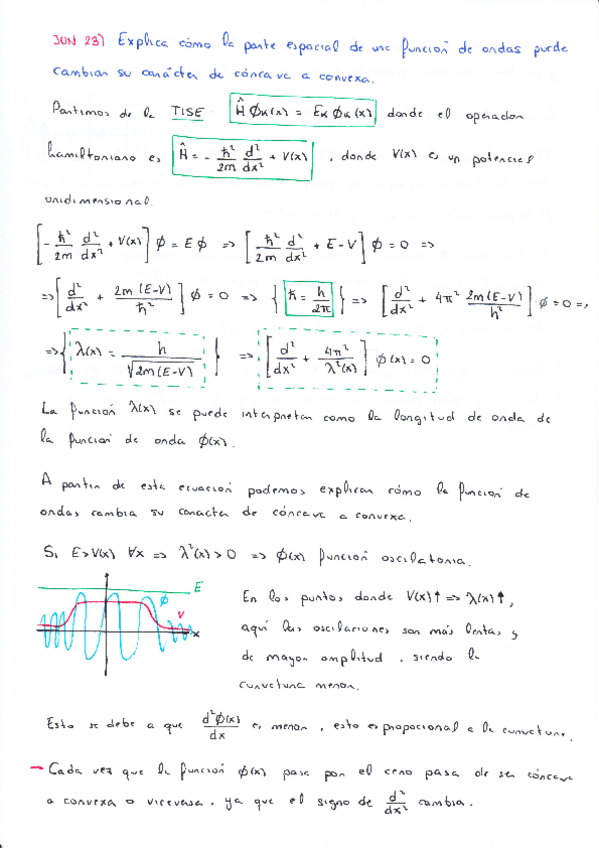 JUN 23) Explica cómo la parte espacial de una función de ondas puede
cambiar su carácter de cóncava a convexa.
Partimos de la TISE Ĥ ϕₖ(x) = Eₖ ϕₖ(x) donde el operador
hamiltoniano es Ĥ = - ħ²/2m d²/dx² + V(x) , donde V(x) es un potencial
unidimensional.
[- ħ²/2m d²/dx² + V(x)] ϕ = E ϕ => [ħ²/2m d²/dx² + E - V] ϕ = 0 =>
=> [d²/dx² + 2m(E-V)/ħ²] ϕ = 0 => { ħ = h/2π } => [d²/dx² + 4π² 2m(E-V)/h²] ϕ = 0 =>
=> { λ(x) = h/√2m(E-V) } => [d²/dx² + 4π²/λ²(x)] ϕ(x) = 0
La función λ(x) se puede interpretar como la longitud de onda de
la función de onda ϕ(x).
A partir de esta ecuación podemos explicar cómo la función de
ondas cambia su caracter de cóncava a convexa.
Si E>V(x) ∀x => λ²(x) > 0 => ϕ(x) función oscilatoria.
E
ϕ
V
x
En los puntos donde V(x)↑ => λ(x)↑,
aquí las oscilaciones son más lentas y
de mayor amplitud, siendo la
curvatura menor.
Esto se debe a que d²ϕ(x)/dx es menor, esto es propocional a la curvatura.
→ Cada vez que la función ϕ(x) pasa por el cero pasa de ser cóncava
a convexa o viceversa, ya que el signo de d²/dx² cambia.